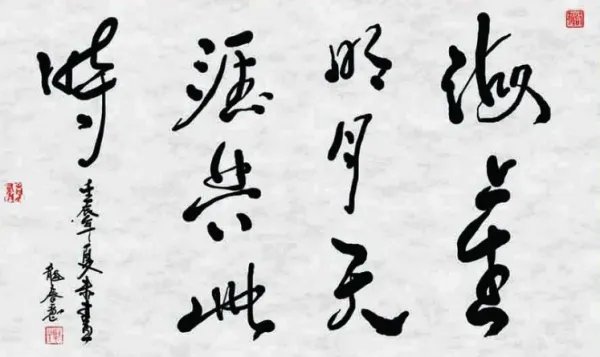 海上生
明月天
涯共此
時
壬辰年夏末書